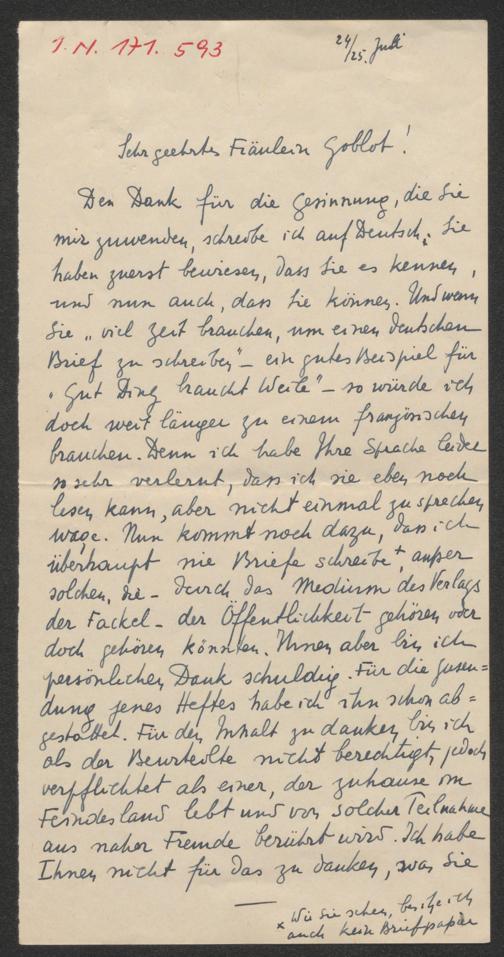 I. N. 171. 593
24/25. Juli
Sehr geehrtes Fräulein Goblot!
Den Dank für die Gesinnung, die Sie
mir zuwenden, schreibe ich auf Deutsch. Sie
haben zuerst bewiesen, dass Sie es kennen,
und nun auch, dass Sie können. Und wenn
Sie „viel Zeit brauchen, um einen deutschen
Brief zu schreiben" – ein gutes Beispiel für
„Gut Ding braucht Weile" – so würde ich
doch weit länger zu einem französischen
brauchen. Denn ich habe Ihre Sprache leider
so sehr verlernt, dass ich sie eben noch
lesen kann, aber nicht einmal zu sprechen
wage. Nun kommt noch dazu, dass ich
überhaupt nie Briefe schreibe+, ausser
solchen, die – durch das Medium des Verlags
der Fackel – der Öffentlichkeit gehören oder
doch gehören könnten. Ihnen aber bin ich
persönlichen Dank schuldig. Für die Zusen=
dung jenes Heftes habe ich ihn schon ab=
gestattet. Für den Inhalt zu danken, bin ich
als der Beurteilte nicht berechtigt, jedoch
verpflichtet als einer, der zuhause im
Feindesland lebt und von solcher Teilnahme
aus naher Fremde berührt wird. Ich habe
Ihnen nicht für das zu danken, was Sie
x Wie Sie sehen, besitze ich
auch kein Briefpapier